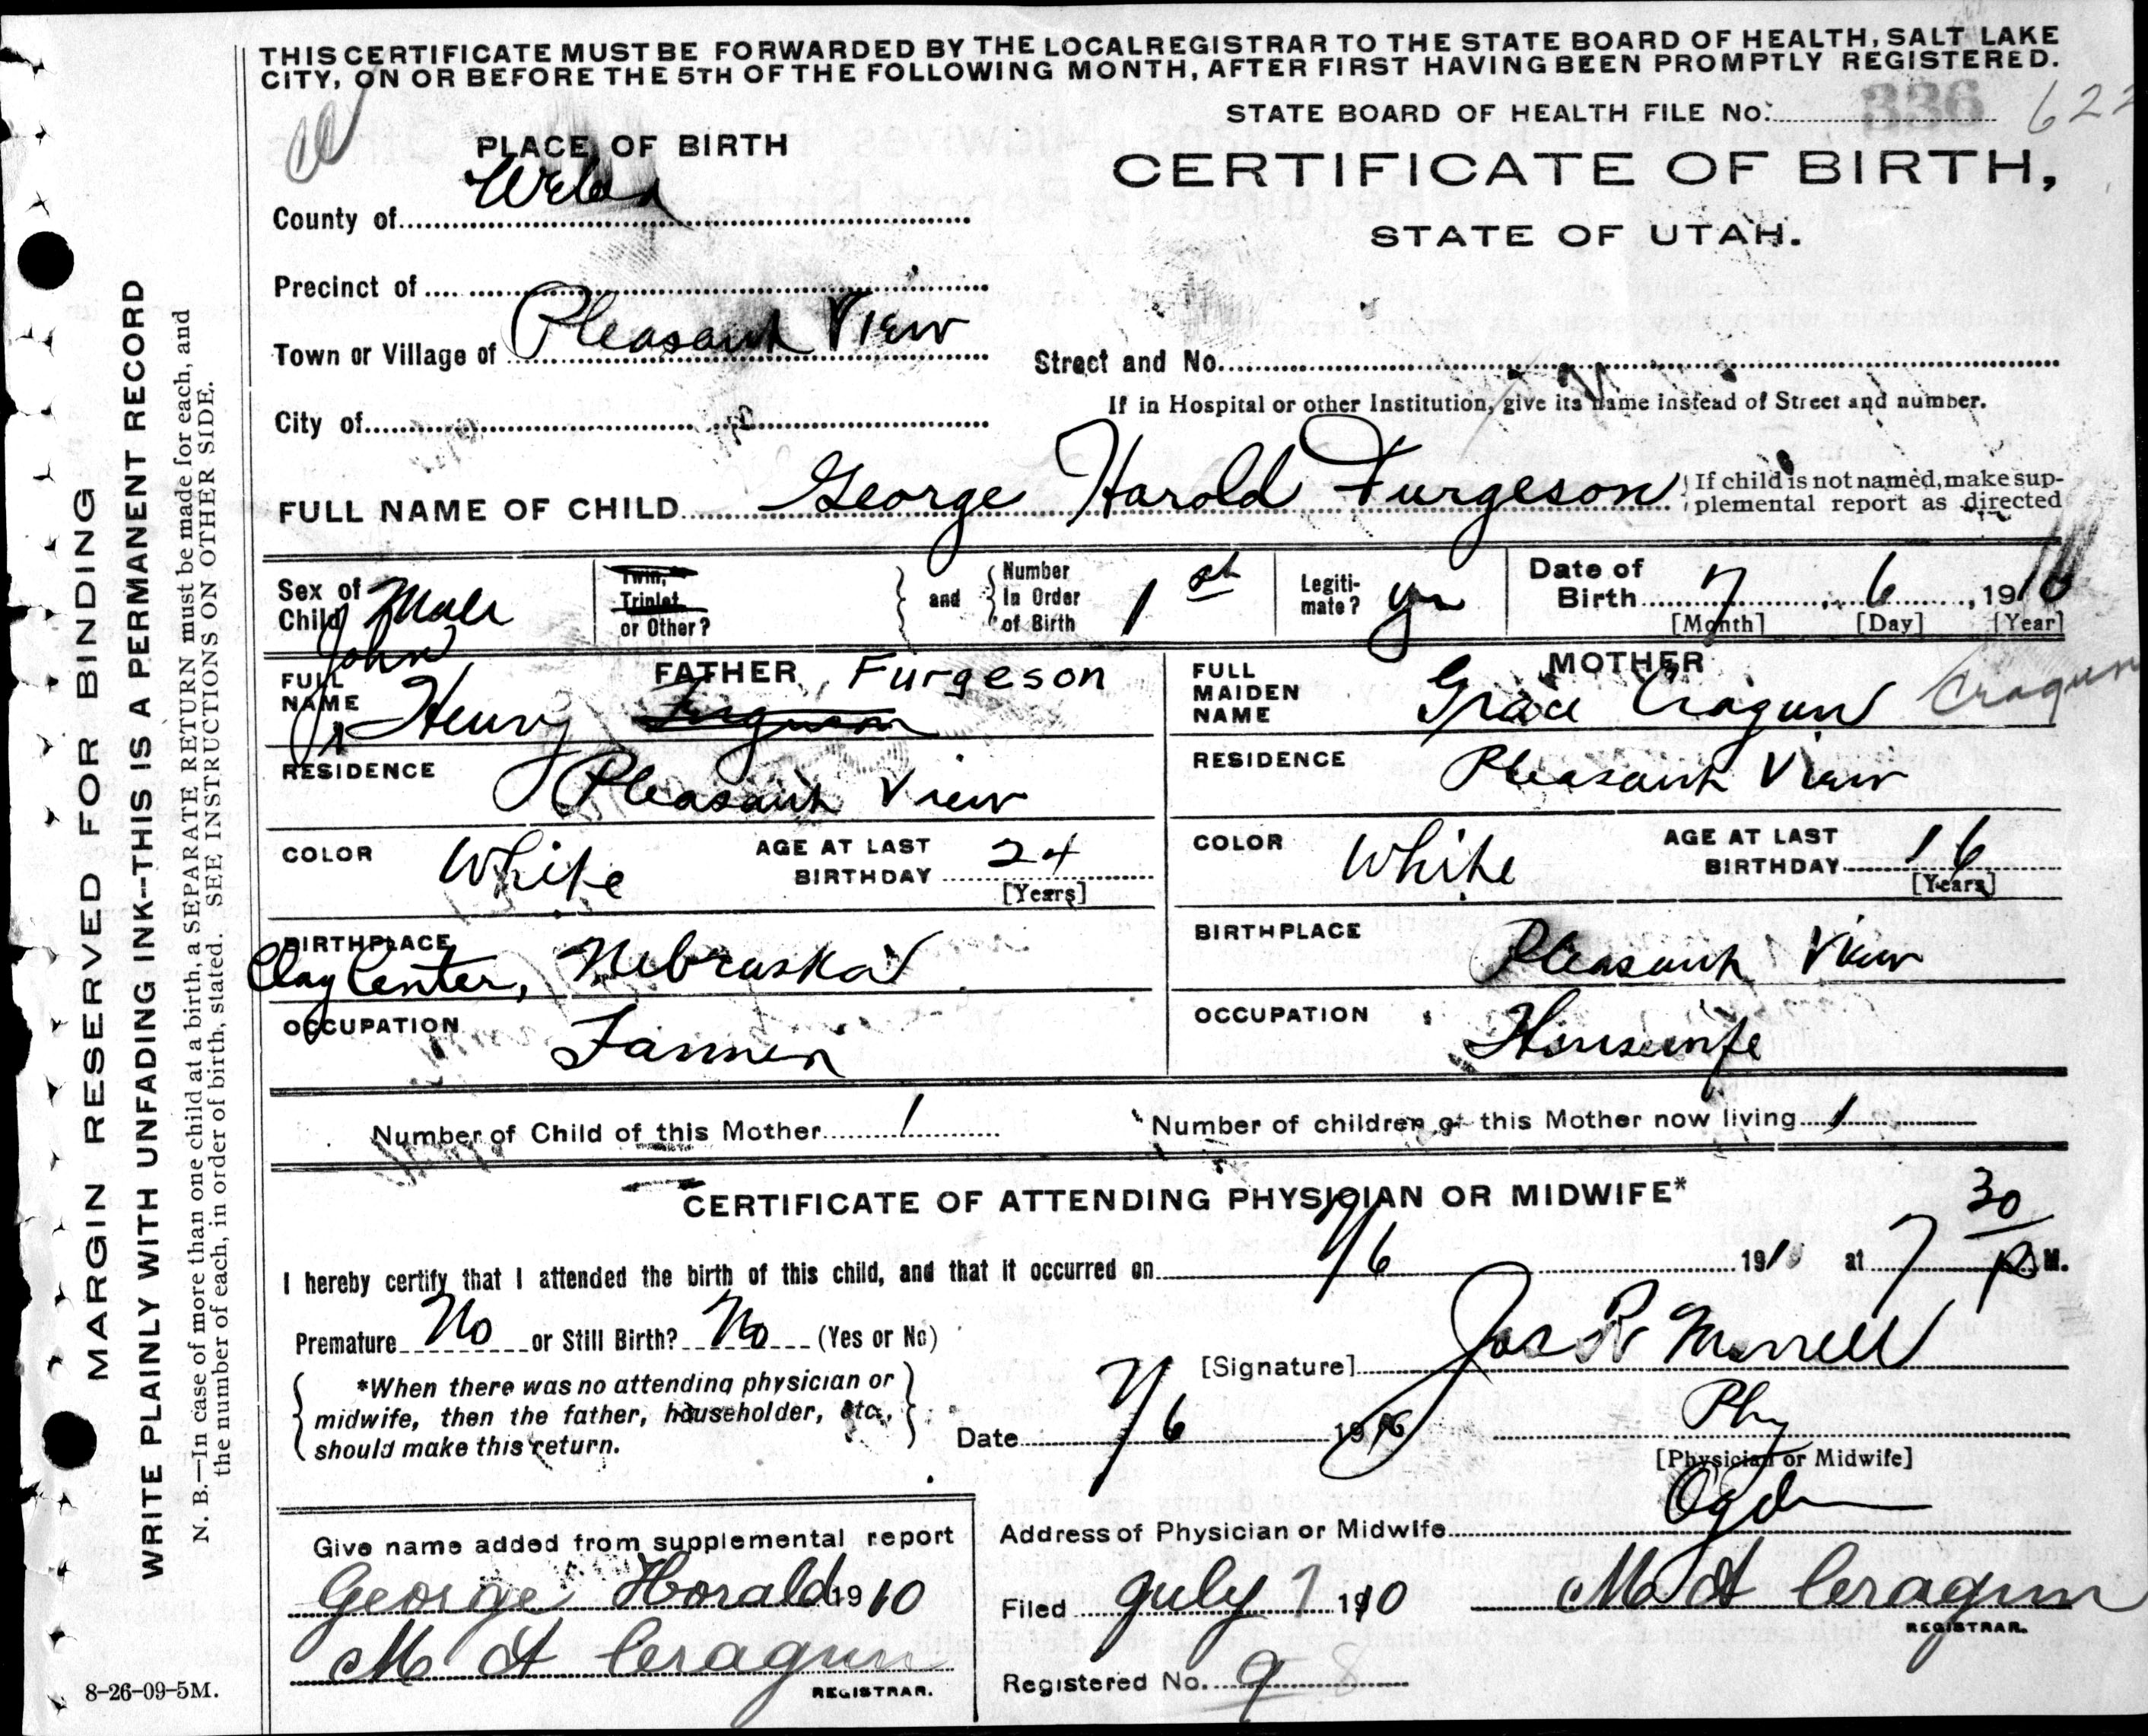 THIS CERTIFICATE MUST BE FORWARDED BY THE LOCAL REGISTRAR TO THE STATE BOARD OF HEALTH, SALT LAKE
CITY, ON OR BEFORE THE 5TH OF THE FOLLOWING MONTH, AFTER FIRST HAVING BEEN PROMPTLY REGISTERED.
STATE BOARD OF HEALTH FILE No. 336 622
PLACE OF BIRTH
CERTIFICATE OF BIRTH,
County of Weber
STATE OF UTAH.
Precinct of
Town or Village of Pleasant View
Street and No.
If in Hospital or other Institution, give its name instead of Street and number.
City of
FULL NAME OF CHILD George Harold Furgeson
If child is not named, make sup-
plemental report as directed
Sex of Child Male
Twin, Triplet or Other?
and
Number In Order of Birth 1st
Legiti-mate? yes
Date of Birth 7 6, 1910
[Month] [Day] [Year]
FATHER
FULL NAME John Henry Ferguson Furgeson
Jr
MOTHER
FULL MAIDEN NAME Grace Cragun Cragun
RESIDENCE Pleasant View
RESIDENCE Pleasant View
COLOR White AGE AT LAST BIRTHDAY 24 [Years]
COLOR White AGE AT LAST BIRTHDAY 16 [Years]
BIRTHPLACE Clay Center, Nebraska
BIRTHPLACE Pleasant View
OCCUPATION Farmer
OCCUPATION Housewife
Number of Child of this Mother 1
Number of children of this Mother now living 1
CERTIFICATE OF ATTENDING PHYSICIAN OR MIDWIFE*
I hereby certify that I attended the birth of this child, and that it occurred on 7/6 1910 at 7 30 P M.
Premature No or Still Birth? No (Yes or No)
[Signature] Jos R Morrell
*When there was no attending physician or
midwife, then the father, householder, etc.,
should make this return.
Date 7/6 1910
Phy
[Physician or Midwife]
Address of Physician or Midwife Ogden
Give name added from supplemental report
George Horald 1910
M A Cragun
REGISTRAR.
Filed July 7 1910 M A Cragun
REGISTRAR.
Registered No. 9 8
8-26-09-5M.
MARGIN RESERVED FOR BINDING
WRITE PLAINLY WITH UNFADING INK--THIS IS A PERMANENT RECORD
N. B.—In case of more than one child at a birth, a SEPARATE RETURN must be made for each, and
the number of each, in order of birth, stated. SEE INSTRUCTIONS ON OTHER SIDE.